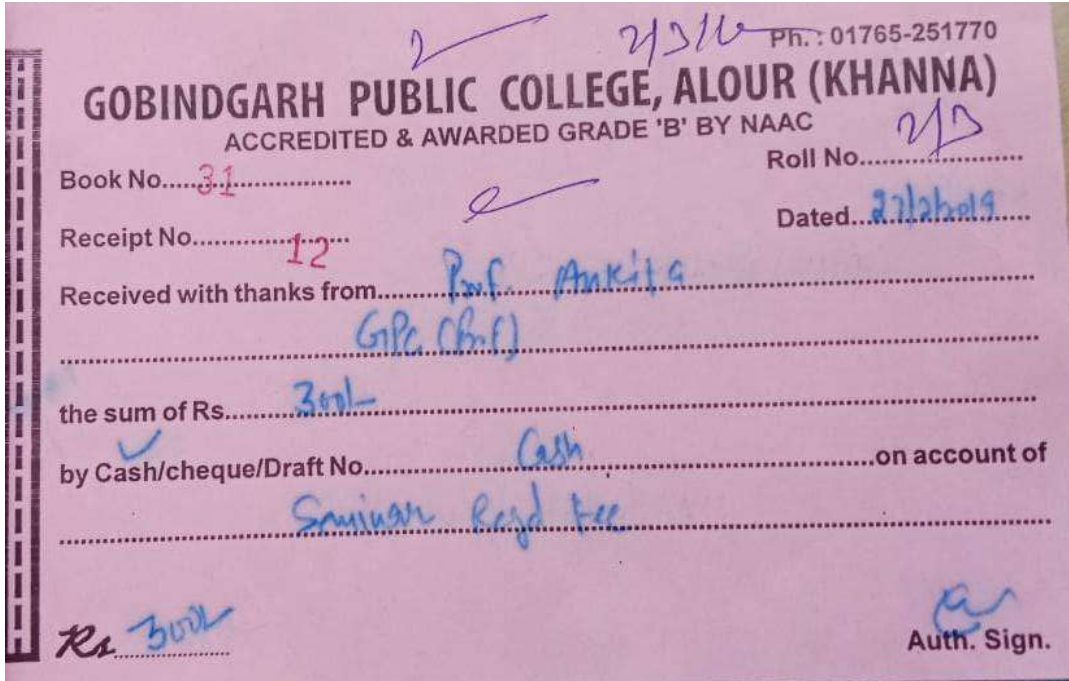 Ph. : 01765-251770
GOBINDGARH PUBLIC COLLEGE, ALOUR (KHANNA)
ACCREDITED & AWARDED GRADE 'B' BY NAAC
Roll No.....................
Book No.....31.....................
Dated...27/2/2019.....
Receipt No.....................12
Received with thanks from.......Prof. Ankita.......
GPC (Prof)
the sum of Rs..........300/-..........
by Cash/cheque/Draft No..........Cash..........on account of
Seminar Regd Fee
Rs 300/-
Auth. Sign.